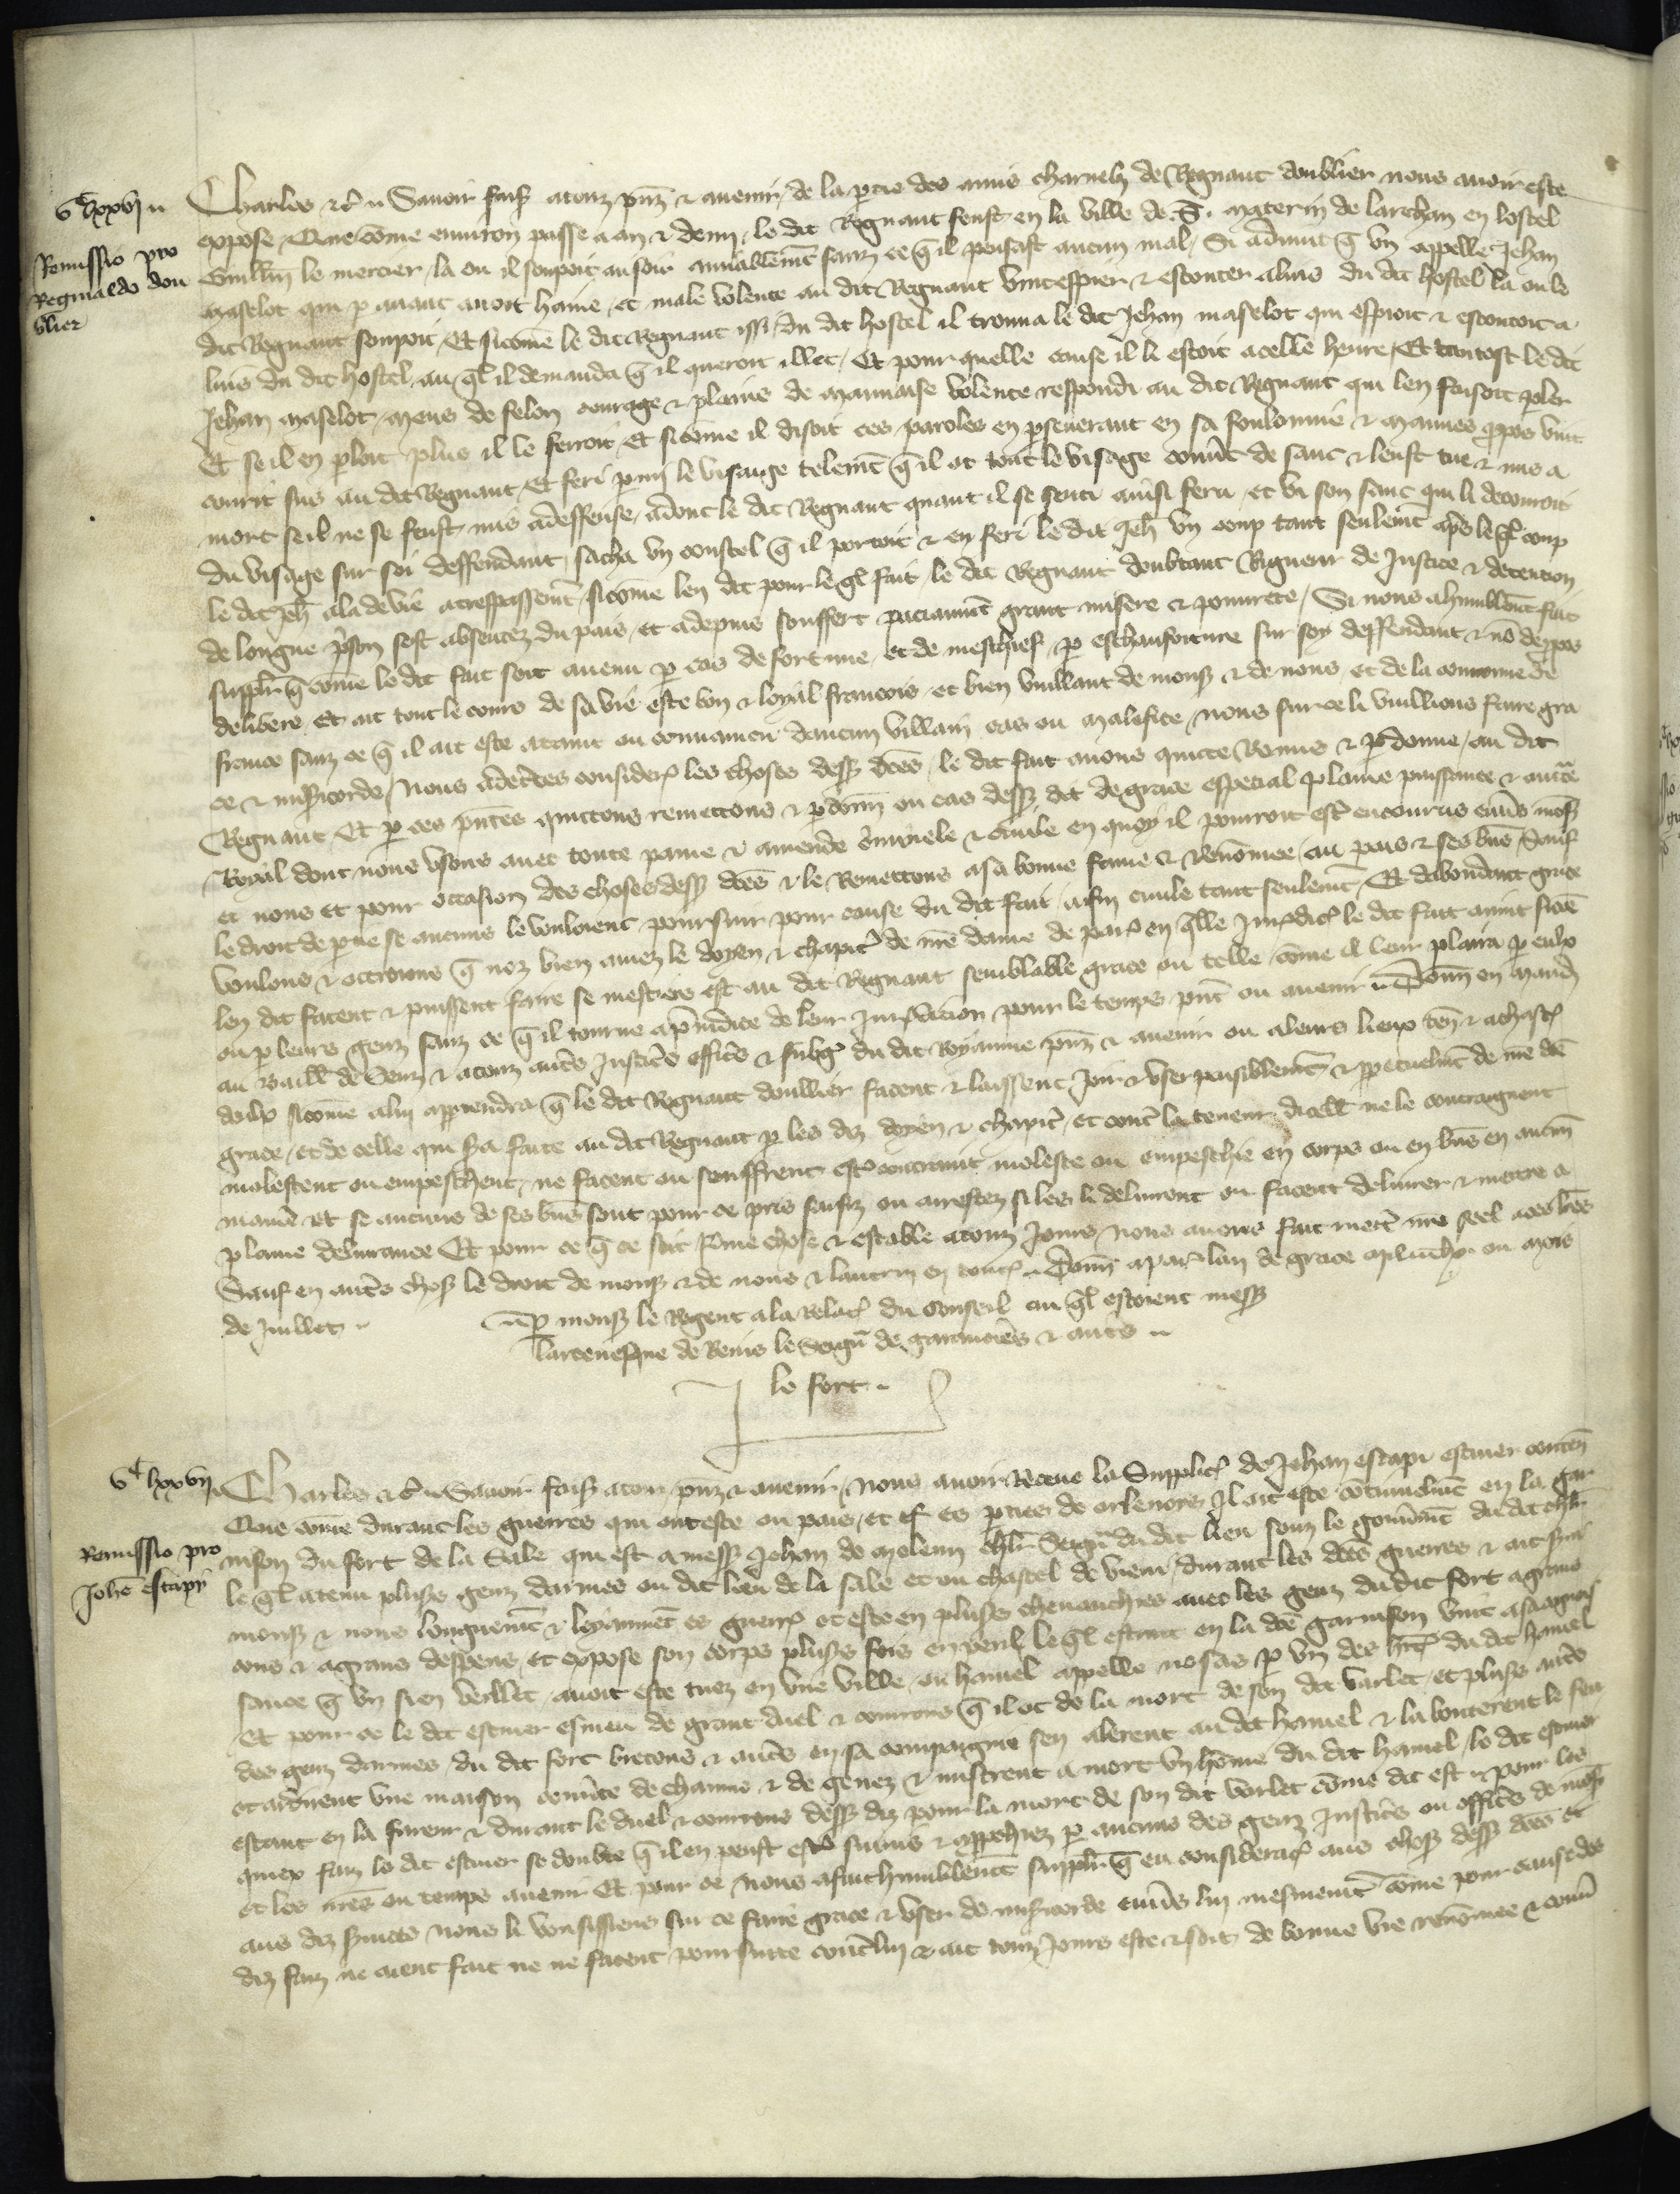 vᶜ lxxvj
Remissio pro
Reginaldo dou
blier
Charles etc̃ Savoir fais̃ a touz pñz & avenir de la partie des amis charnelz de Regnaut doublier nous avoir este
expose Que cõme environ passe a an & demy le dit Regnaut feust en la ville de .S. Materin de larchan en lostel
Guillm̃ le mercier la ou il soupoit au soir amiablem̃t sanz ce q̃ il pensast aucun mal Si advint q̃ un appelle Jehan
maselot qui p avant avoit haine et male volente au dit Regnaut vint espier & escouter a luis du dit hostel la ou le
dit Regnaut soupoit Et sicõme le dit Regnaut issi du dit hostel il trouva le dit Jehan maselot qui espioit & escoutoit a
luis du dit hostel au q̃l il demanda q̃ il queroit illec Et pour quelle cause il li estoit a celle heure Et tantost le dit
Jehan maselot meus de felon courage & plains de mauvaise volente respondi au dit Regnaut qui len faisoit p̱ler
Et se il en p̱loit plus il le ferroit Et sicõme il disoit ces paroles en p̱severant en sa foulonnie & mauves p̱pos vint
courir sus au dit Regnaut Et feri p̱mi le visaige telem̃t q̃ il ot tout le visage couv̾t de sanc & leust tue & mis a
mort se il ne se feust mis a deffense adonc le dit Regnaut quant il se senti ainsi feru et vi son sanc qui li decouroit
du visage sur soi deffendant sacha un coustel q̃ il portoit & en feri le dit Jeh̃ un coup tant seulem̃t ap̾s le q̃l coup
le dit Jeh̃ ala de vie a trespassem̃t sicõme len dit pour le q̃l fait le dit Regnaut doubtant Rigueur de Justice & detention
de longue p̾son sest absentez du pais et a depuis souffert paciaum̃t grant misere & povrete Si nous a humblem̃t fait
suppl̃r q̃ cõme le dit fait soit avenu p̱ cas de fortune et de meschief p̱ eschaufoiture sur soy deffendant & nõ de p̱pos
delibere Et ait tout le cours de sa vie este bon & loyal francois et bien vuillant de mons̃ & de nous et de la couronne de
france sanz ce q̃ il ait este ataint ou convaincu daucun villain cas ou malefice nous sur ce li vuillions faire gra
ce & mis̃icorde Nous adc̾tes considere les choses dess̃ dc̃es le dit fait avons quicte Remis & p̱donne au dit
Regnaut Et p̱ ces p̃ntes quictons remettons & p̱donn̾ ou cas dess̃ dit de grace especial plaine puissance & auct̾te
Royal dont nous usons avec toute paine & amende c̾minele & civile en quoy il pourroit est̾ encourus env̾s mons̃
et nous et pour occasion des choses dess̃ dc̃es & le Remettons a sa bonne fame & renõmee au pais & ses biẽs Sauf
le droit de p̱tie se aucuns le vouloient poursuir pour cause du dit fait a fin civile tant seulem̃t Et dabondant grace
voulons & octroions q̃ noz bien amez le doyen & chapit̾ de nr̃e dame de par̾ en q̃lle Jur̾dic̃ le dit fait avint sicõe
len dit facent & puissent faire se mestiers est au dit Regnaut semblable grace ou telle cõme il leur plaira p̱ eulx
ou p̱ leurs genz sanz ce q̃ il tourne a p̱iudice de leur Jur̾dicion pour le temps p̃nt ou avenir Donn̾ en mand̾
au Baill̃ de Senz & a touz aut̾s Justic̾s offic̾s & subg̾ du dit Royaume pñz & avenir ou a leurs lieux ten̾ & a chasc̾
deulx sicõme a lui apptendra q̃ le dit Regnaut doublier facent & laissent Joir & user paisiblem̃t & p̱petuelm̃t de nr̃e dc̃e
grace et de celle qui s̾a faite au dit Regnaut p̱ les diz doyen & chapit̾ et cont̾ la teneur dicell̃ ne le contraignent
molestent ou empeschent ne facent ou seuffrent est̾ contraint moleste ou empeschie en corps ou en biẽs en aucun̾
maniẽ Et se aucuns de ses biẽs sont pour ce pris saisiz ou arrestez si les li delivrent ou facent delivrer & mettre a
plaine delivrance Et pour ce q̃ ce soit ferme chose & estable a touz Jours nous avons fait mett̾ nr̃e seel a ces lr̃es
Sauf en aut̾s chos̃ le droit de mons̃ & de nous & lautrui en tout̾ Donn̾ a par̾ lan de grace mil ccc lx ou mois
de Juillet p̱ mons̃ le Regent a la relac̃ du Conseil au q̃l estoient mess̃
larcevesque de Reins le Seign̾ de garencier̾s & aut̾s
le fort
vᶜ lxxvij
Remissio pro
Joh̃e estapy
Charles etc̃ Savoir fais̃ a touz pñz & avenir Nous avoir Receue la Supplic̃ de Jehan estapi escuier conten̾
Que cõme durant les guerres qui ont este ou pais et es p̱ties de orlenois Il ait este cõtinuelm̃t en la gar
nison du fort de la Sale qui est a mess̃ Jehan de melun chl̃r Seign̾ du dit lieu souz le gouv̾nem̃t du dit chl̃r
le q̃l a tenu plus̃s genz darmes ou dit lieu de la sale et ou chastel de vieu durant les dc̃es guerres & ait s̾vi
mons̃ & nous longuem̃t & loyaum̃t es guerr̾ et este en plus̃s chevauchies avec les genz du dit fort a grans
cous & a grans despens et expose son corps plus̃s fois en peril le q̃l estant en la dc̃e garnison vint a sa cognois
sance q̃ un sien vellet avoit este tuez en une ville ou hamel appelle nosas p̱ un des hit̾ du dit hamel
Et pour ce le dit escuier esmeu de grant duel & courrous q̃ il ot de la mort de son dit varlet et plus̃s aut̾s
des genz darmes du dit fort bretons & aut̾s en sa compaignie sen alerent au dit hamel & la bouterent le feu
et ardirent une maison couv̾te de chaume & de genez & mistrent a mort un hõme du dit hamel le dit escuier
estant en la fureur & durant le duel & courrous dess̃ diz pour la mort de son dit vorlet cõme dit est pour les
quiex faiz le dit escuier se doubte q̃ il en peust est̾ suivis & approchiez p̱ aucuns des genz Justic̾s ou offic̾s de mons̃
et les nr̃es ou temps avenir Et pour ce nous a fait humblem̃t suppl̃r q̃ eu considerac̃ aus chos̃ dess̃ dc̃es et
aus diz s̾vices nous li vousissions sur ce faire grace & user de mis̃icorde env̾s lui mesmem̃t cõme pour cause des
diz faiz ne aient fait ne ne facent poursuite cont̾ lui & ait touz Jours este & soit de bonne vie renõmee & conv̾